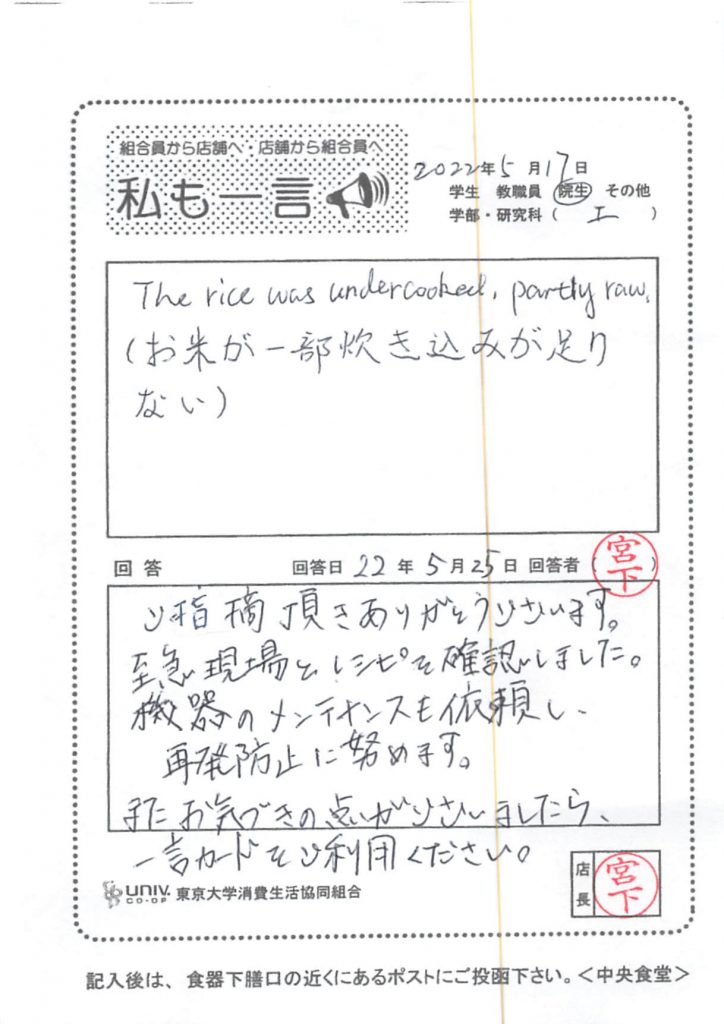 組合員から店舗へ 店舗から組合員へ
私も一言
2022年5月17日
学生 教職員 院生 その他
学部・研究科( 工 )
The rice was undercooked, partly raw.
(お米が一部炊き込みが足り
ない)
回答 回答日 22年 5月25日 回答者( 宮下 )
ご指摘頂きありがとうございます。
至急現場とレシピを確認しました。
機器のメンテナンスも依頼し、
再発防止に努めます。
またお気づきの点がございましたら、
一言カードをご利用ください。
UNIV. CO-OP 東京大学消費生活協同組合
店長 宮下
記入後は、食器下膳口の近くにあるポストにご投函下さい。<中央食堂>